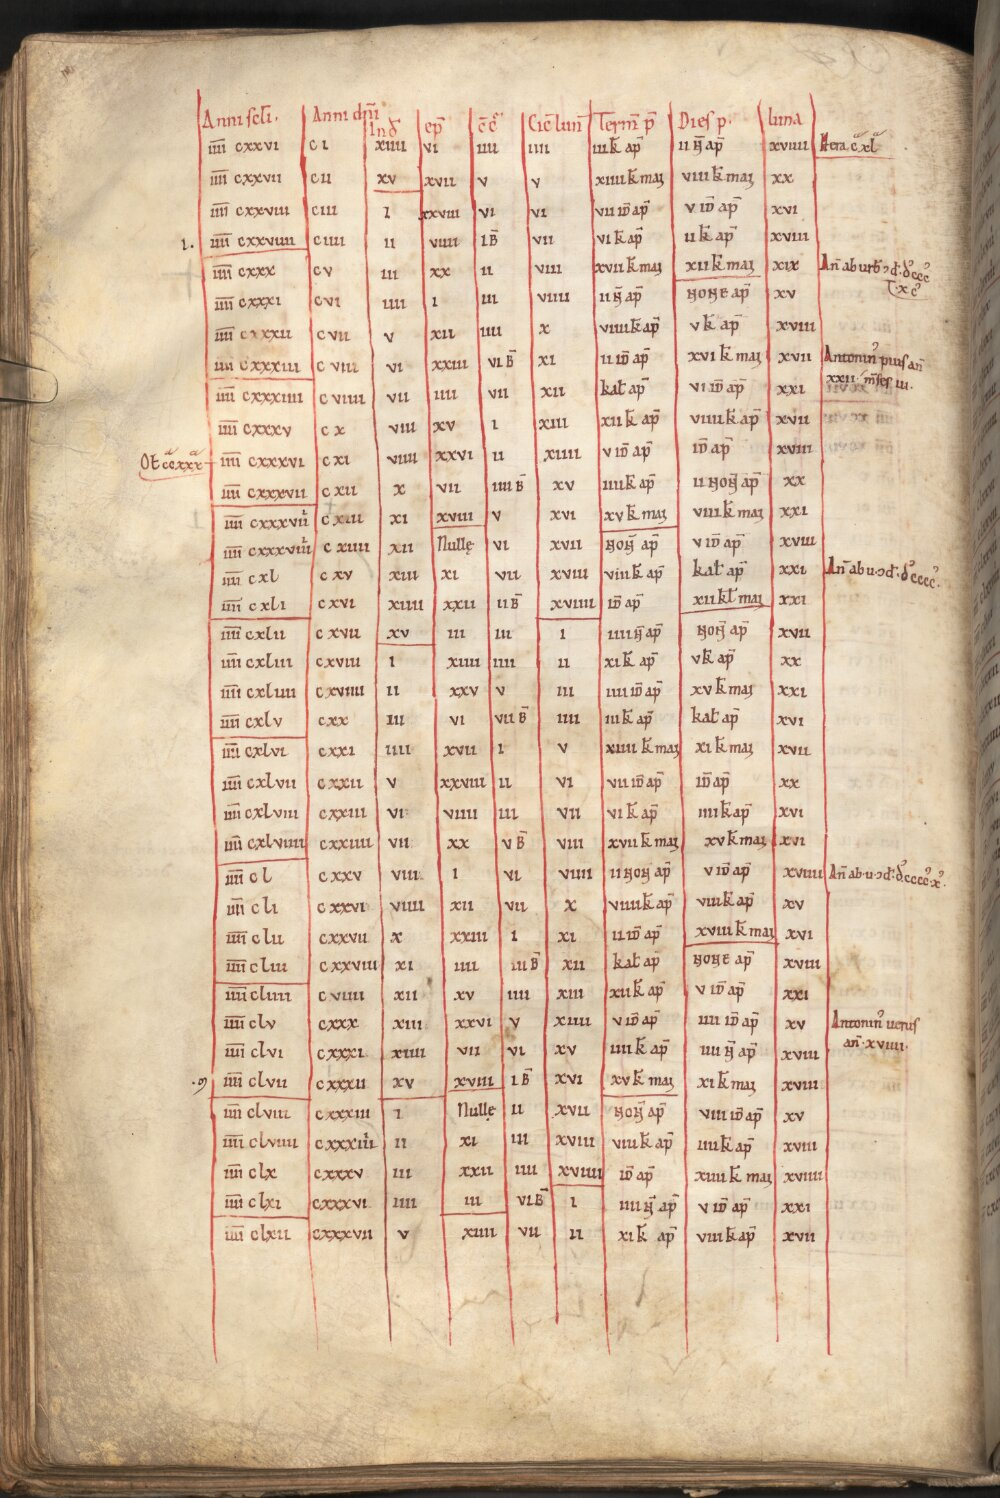 Anni scti. Anni dñi Ind ep̄ c̄c̄ Cicl lun Term̄ p̄ Dies p. luna
iiii cxxvi ci xiiii vi iiii iiii iii k ap̄ ii n̄ ap̄ xviiii Aera. cxl
iiii cxxvii cii xv xvii v v xiiii k mai viii k mai xx
iiii cxxviii ciii i xxviii vi vi vii id ap̄ v id ap̄ xvi
i. iiii cxxviiii ciiii ii viiii i B̄ vii vi k ap̄ ii k ap̄ xviii
iiii cxxx cv iii xx ii viii xvii k mai xii k mai xix Añ ab urb
iiii cxxxi cvi iiii i iii viiii ii n̄ ap̄ none ap̄ xv xc
iiii cxxxii cvii v xii iiii x viiii k ap̄ v k ap̄ xviii
iiii cxxxiii cviii vi xxiii vi B̄ xi ii id ap̄ xvi k mai xvii Antonin' pius añ
xxii. m̄ses iii.
iiii cxxxiiii cviiii vii iiii vii xii kal ap̄ vi id ap̄ xxi
iiii cxxxv cx viii xv i xiii xii k ap̄ viiii k ap̄ xvii
Ol ccxxx iiii cxxxvi cxi viiii xxvi ii xiiii v id ap̄ id ap̄ xviii
iiii cxxxvii cxii x vii iiii B̄ xv iiii k ap̄ ii non ap̄ xx
iiii cxxxviii cxiii xi xviii v xvi xv k mai viii k mai xxi
iiii cxxxviiii cxiiii xii Nullę vi xvii non ap̄ v id ap̄ xviii
iiii cxl cxv xiii xi vii xviii viii k ap̄ kal ap̄ xxi Añ ab u.
iiii cxli cxvi xiiii xxii ii B̄ xviiii id ap̄ xii kl mai xxi
iiii cxlii cxvii xv iii iii i iiii n̄ ap̄ non ap̄ xvii
iiii cxliii cxviii i xiiii iiii ii xi k ap̄ v k ap̄ xx
iiii cxliiii cxviiii ii xxv v iii iiii id ap̄ xv k mai xxi
iiii cxlv cxx iii vi vii B̄ iiii iii k ap̄ kal ap̄ xvi
iiii cxlvi cxxi iiii xvii i v xiiii k mai xi k mai xvii
iiii cxlvii cxxii v xxviii ii vi vii id ap̄ id ap̄ xx
iiii cxlviii cxxiii vi viiii iii vii vi k ap̄ iiii k ap̄ xvi
iiii cxlviiii cxxiiii vii xx v B̄ viii xvii k mai xv k mai xvi
iiii cl cxxv viii i vi viiii ii non ap̄ v id ap̄ xviiii Añ ab. u.
iiii cli cxxvi viiii xii vii x viiii k ap̄ viii k ap̄ xv
iiii clii cxxvii x xxiii i xi ii id ap̄ xviii k mai xvi
iiii cliii cxxviii xi iiii iii B̄ xii kal ap̄ none ap̄ xviii
iiii cliiii cviiii xii xv iiii xiii xii k ap̄ v id ap̄ xxi
iiii clv cxxx xiii xxvi v xiiii v id ap̄ iiii id ap̄ xv Antonin' uerus
añ. xviiii.
iiii clvi cxxxi xiiii vii vi xv iiii k ap̄ iiii n̄ ap̄ xviii
iiii clvii cxxxii xv xviii i B̄ xvi xv k mai xi k mai xviii
iiii clviii cxxxiii i Nullę ii xvii non ap̄ viii id ap̄ xv
iiii clviiii cxxxiiii ii xi iii xviii viii k ap̄ iiii k ap̄ xviii
iiii clx cxxxv iii xxii iiii xviiii id ap̄ xiiii k mai xviiii
iiii clxi cxxxvi iiii iii vi B̄ i iiii n̄ ap̄ v id ap̄ xxi
iiii clxii cxxxvii v xiiii vii ii xi k ap̄ viii k ap̄ xvii